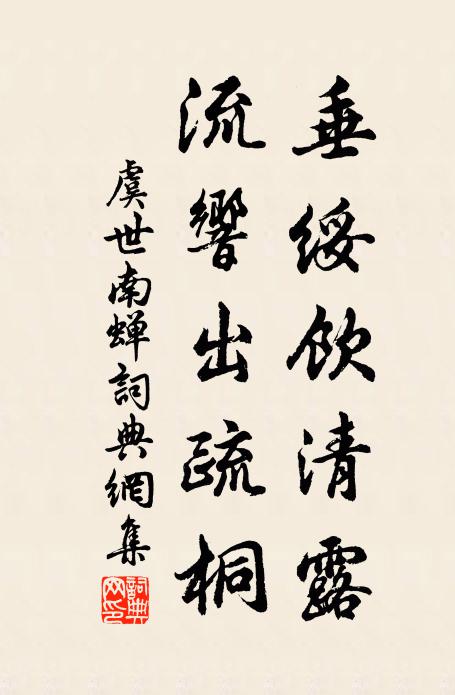 垂緌飲清露
流響出疏桐
虞世南蟬詞典網集
詞典網印